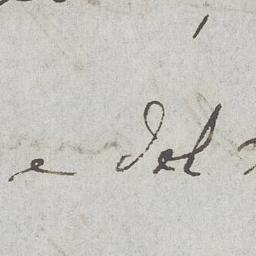 e del